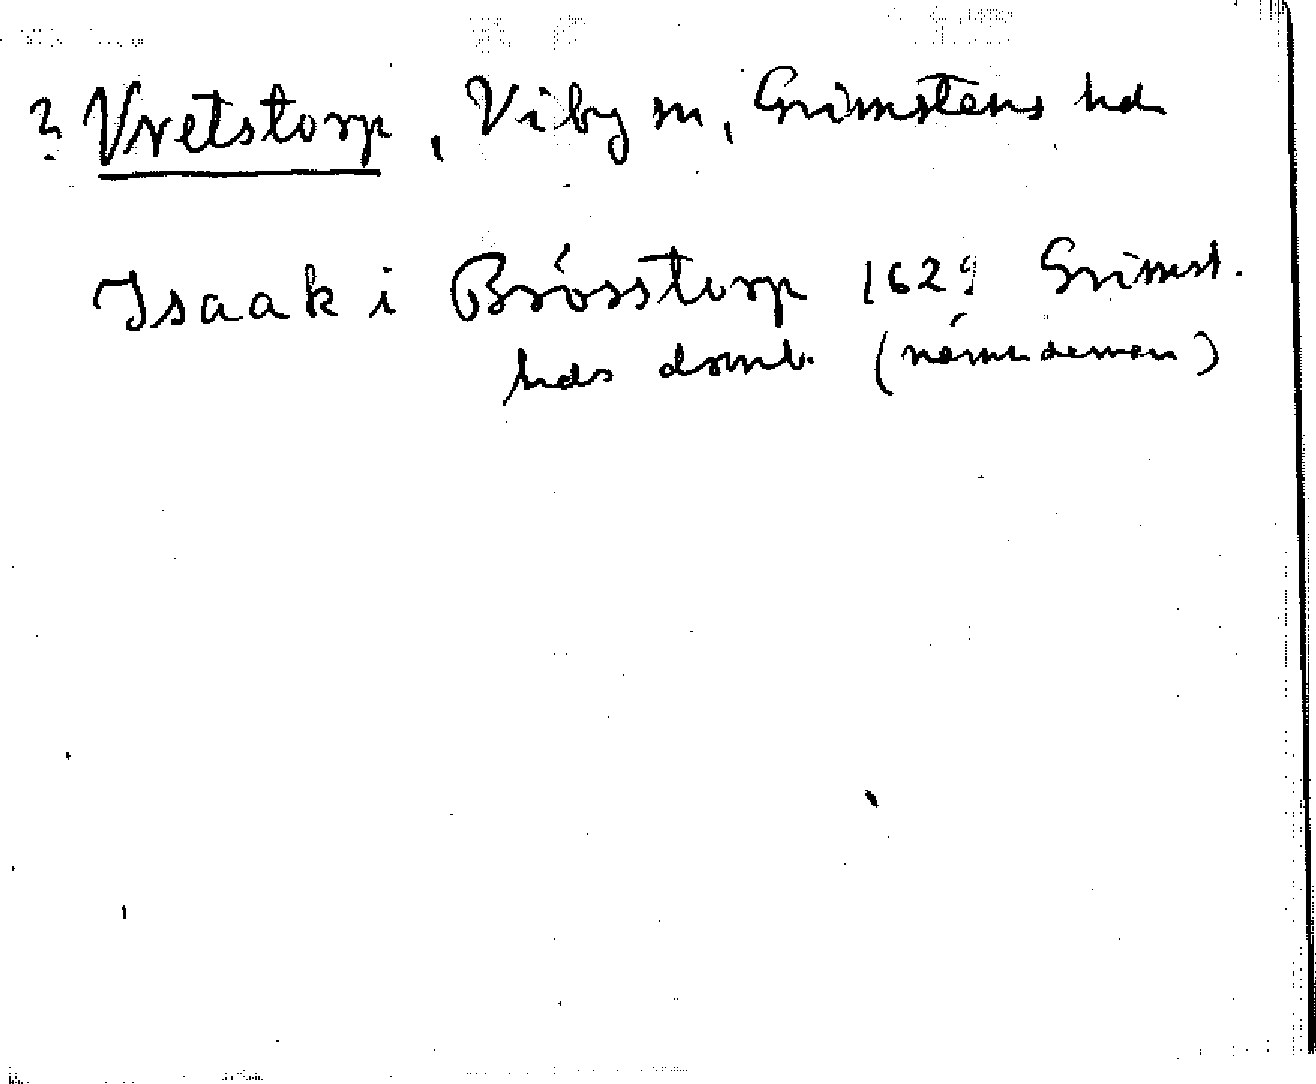 ? Vretstorp, Viby sn, Grimstens hd
Isaak i Brósstorp 1629 Grimst.
hds domb. (nämndeman)